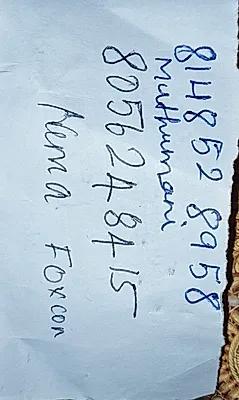 814852 8958
Muthumani
8056248415
Nema Foxcon